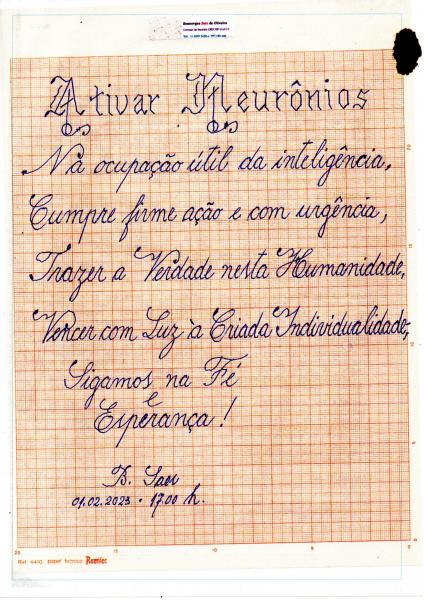 Ativar Neurônios
Na ocupação útil da inteligência,
Cumpre firme ação e com urgência,
Trazer a Verdade nesta Humanidade,
Vencer com Luz à Criada Individualidade;
Sigamos na Fé
e
Esperança!
B. Saer
01.02.2023 - 17.00 h.
20 15 10 5 0
papel técnico